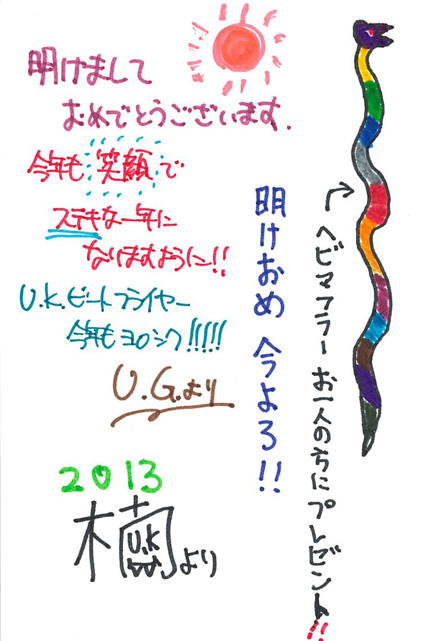 明けまして
おめでとうございます.
今年も 笑顔 で
ステキな一年に
なりますように!!
U.K.ビートフライヤー
今年もヨロシク!!!!!
U.G.より
2013
楠より
U.K
明けおめ 今よろ!!
ヘビマフラー お一人の方にプレゼント!!